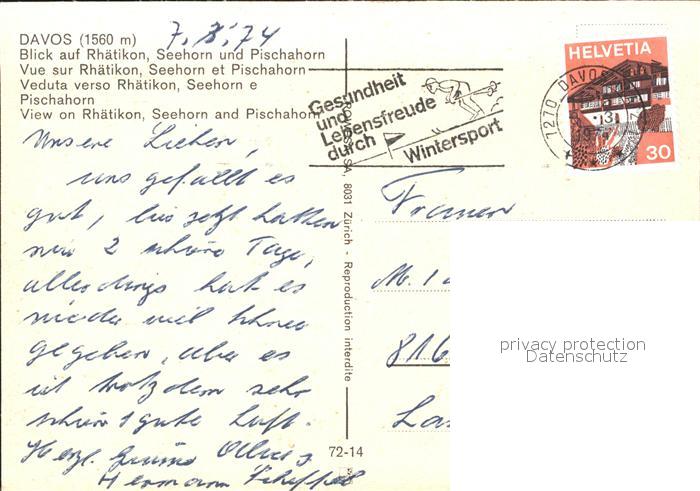 DAVOS (1560 m)
7. 3. 74
Blick auf Rhätikon, Seehorn und Pischahorn
Vue sur Rhätikon, Seehorn et Pischahorn
Veduta verso Rhätikon, Seehorn e
Pischahorn
View on Rhätikon, Seehorn and Pischahorn
Unsere Lieben,
uns gefällt es
gut, bis jetzt hatten
wir 2 schöne Tage,
allerdings hat es
wieder viel Schnee
gegeben, aber es
ist trotzdem sehr
schön + gute Luft.
Herzl. Grüsse
Hermann
SA, 8031 Zürich - Reproduction interdite
72-14
Gesundheit
und
Lebensfreude
durch
Wintersport
7270 DAVOS
HELVETIA
30
M. 1
816
La
privacy protection
Datenschutz